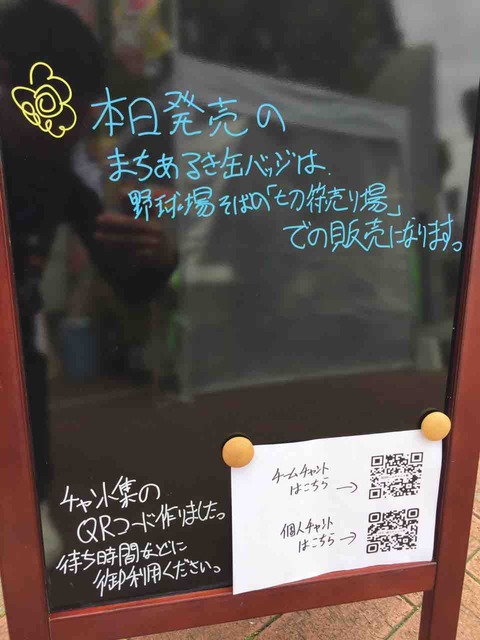 本日発売の
まちあるき缶バッジは、
野球場そばの「七夕笹売り場」
での販売になります。
チャント集の
QRコード作りました。
待ち時間などに
御利用ください。
チームチャント
はこちら→
個人チャント
はこちら→